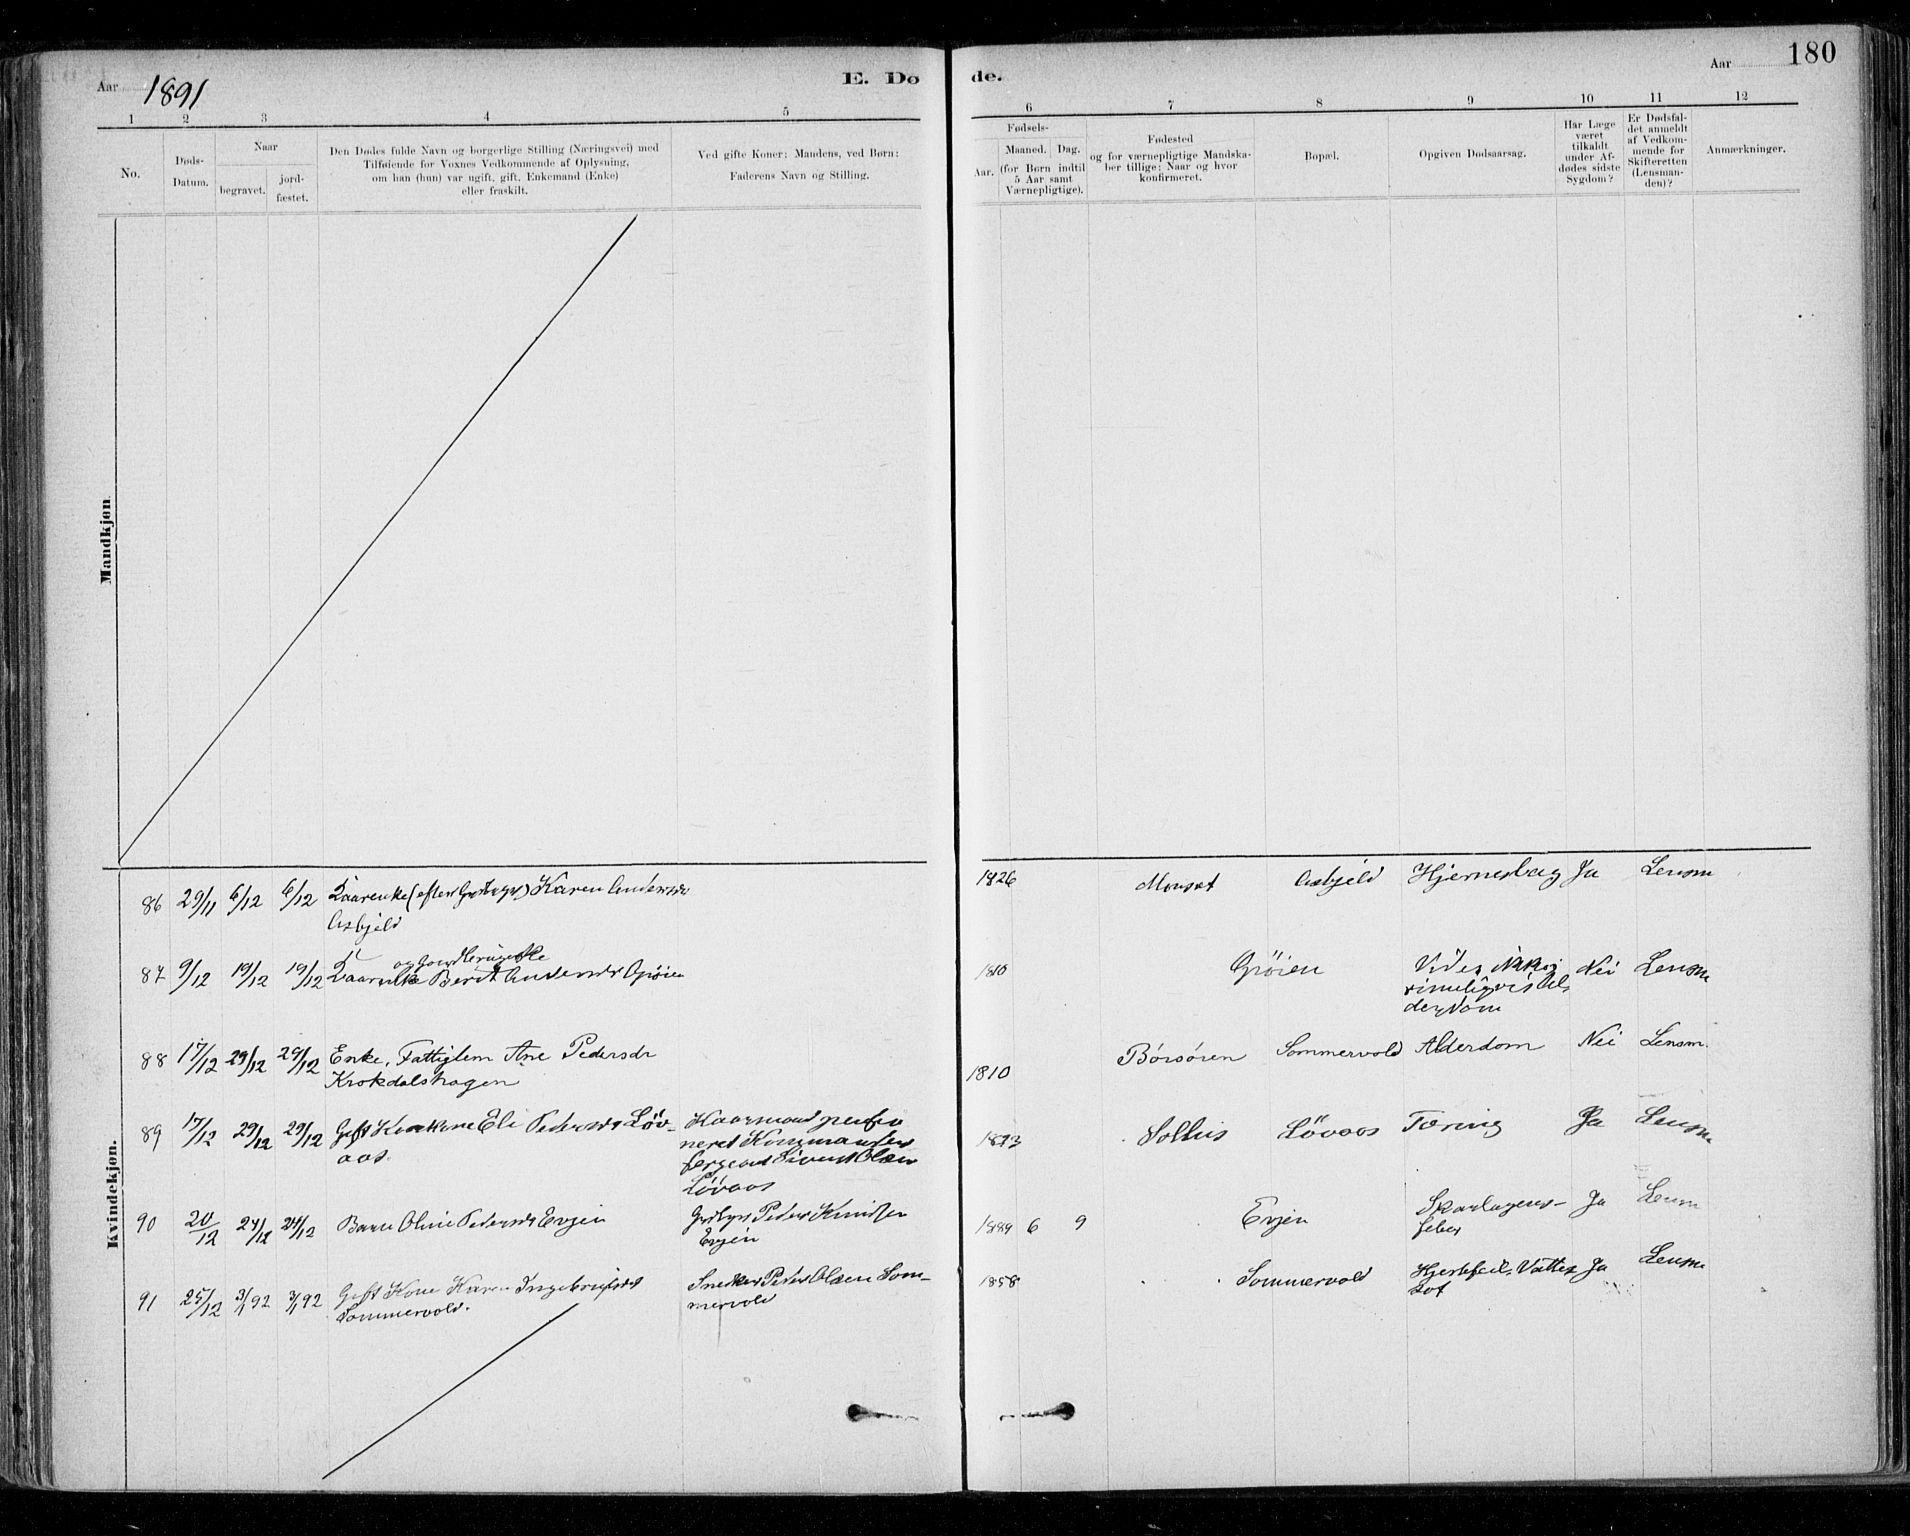 Aar 1891
E. Dø
de.
Aar
180
1 2 3 4 5
6 7 8 9 10 11 12
No.
Døds-
Datum.
Naar
begravet.
jord-
fæstet.
Den Dødes fulde Navn og borgerlige Stilling (Næringsvei) med
Tilføiende for Voxnes Vedkommende af Oplysning,
om han (hun) var ugift, gift, Enkemand (Enke)
eller fraskilt.
Ved gifte Koner: Mandens, ved Børn:
Faderens Navn og Stilling.
Fødsels-
Aar.
Maaned. Dag.
(for Børn indtil
5 Aar samt
Værnepligtige).
Fødested
og for værnepligtige Mandska-
ber tillige: Naar og hvor
konfirmeret.
Bopæl.
Opgiven Dødsaarsag.
Har Læge
været
tilkaldt
under Af-
dødes sidste
Sygdom?
Er Dødsfal-
det anmeldt
af Vedkom-
mende for
Skifteretten
(Lensman-
den)?
Anmærkninger.
Mandkjøn
Kvindekjøn.
86 29/11 6/12 6/12 Kaarenke (efter Karen Andersdr
Asbjeld
1826 Monset Asbjeld Hjerneslag Ja Lensm
87 9/12 19/12 19/12 Kaarenke Berit Andersdr Grøien
1810 Grøien Vides ikke; Nei Lensm
rimeligvis Al-
derdom
88 17/12 29/12 29/12 Enke, Fattiglem Ane Pedersdr
Krokdalshagen
1810 Børsøren Sommervold Alderdom Nei Lensm.
89 17/12 29/12 29/12 Gift Kone Eli Pedersdr Løv-
aas.
Kaarmand pensio
neret
Sergeant Sivert Olsen
Løvaas
Løvaas Tæring Ja Lensm
90 20/12 24/12 24/12 Barn Oline Pedersdr Evjen
Peder Knudsen
Evjen
1889 6 9 Evjen Skarlagens- Ja Lensm
feber
91 25/12 3/1 92 3/1 92 Gift Kone Karen Ingebrigtsdr
Sommervold.
Snedker Peder Olsen Som-
mervold
1858 Sommervold Hjertefeil, Vatter Ja Lensm
sot